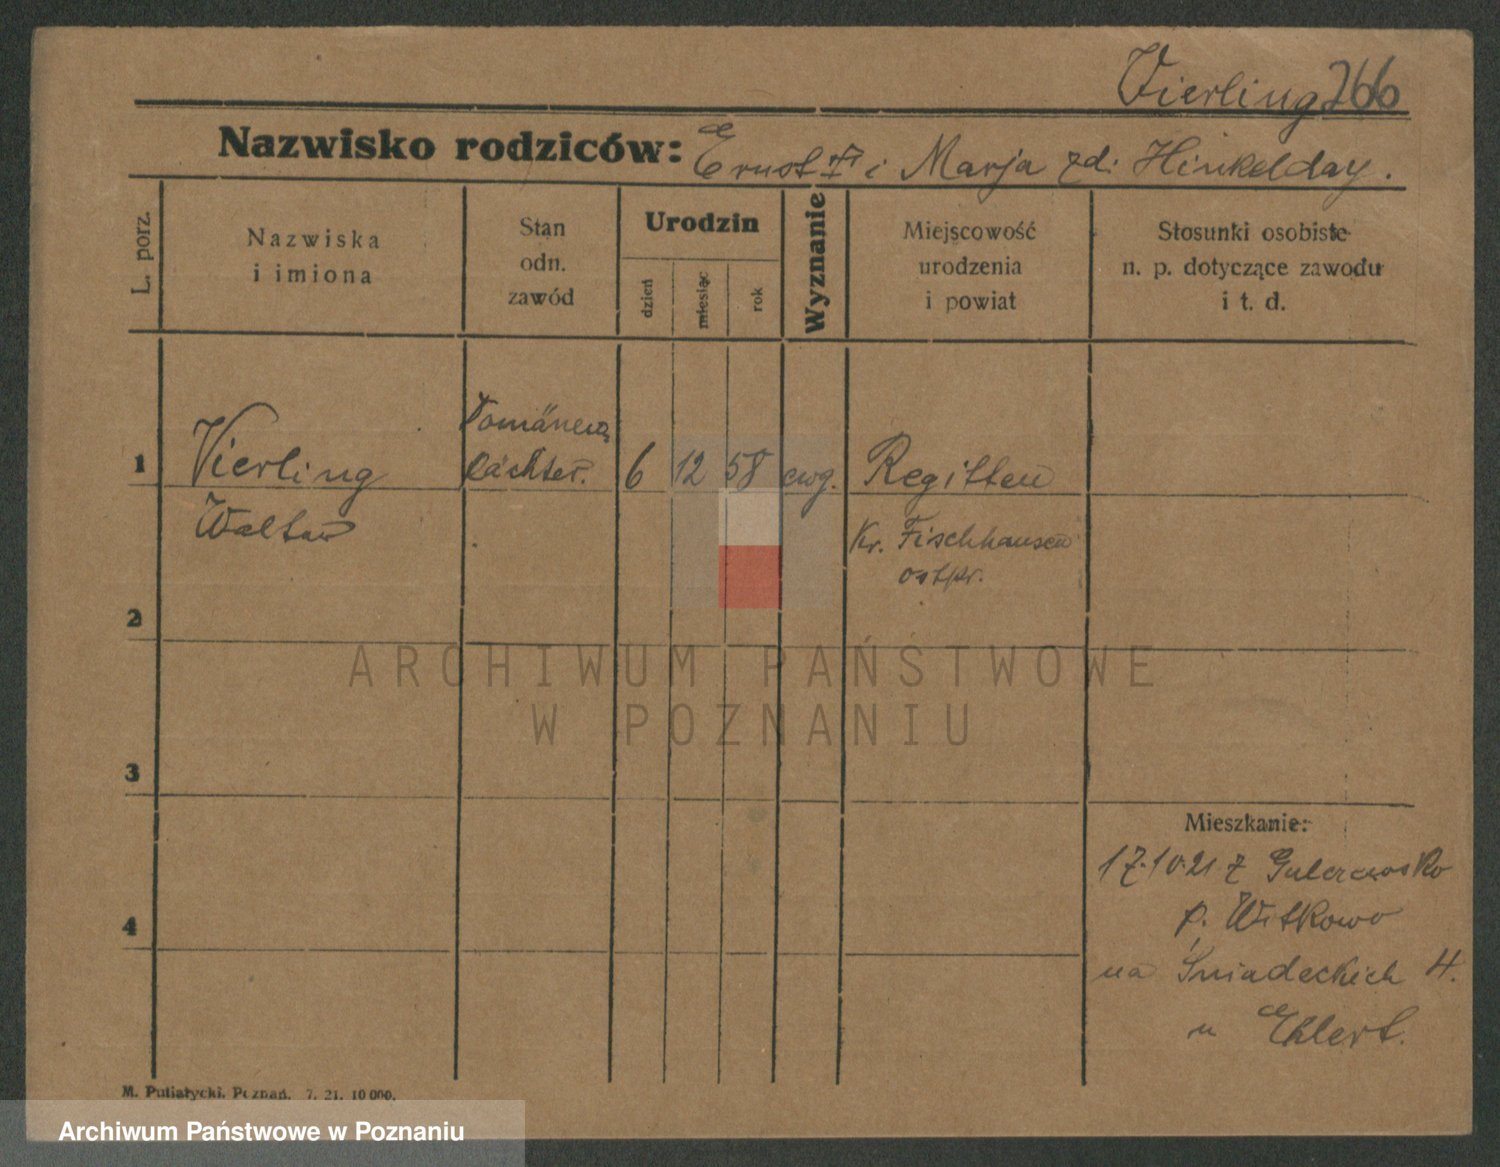 Vierling 766
Nazwisko rodziców: Ernst i Marja zd: Hinkelday.
L. porz.
Nazwiska
i imiona
Stan
odn.
zawód
Urodzin
dzień
miesiąc
rok
Wyznanie
Miejscowość
urodzenia
i powiat
Słosunki osobiste
n. p. dotyczące zawodu
i t. d.
1
Vierling
Walter
Domänen
Pächter.
6 12 58 ewg.
Regitten
Kr. Fischhausen
ostpr.
2
3
4
Mieszkanie:
17.10.21 z
p. Witkowo
na Śniadeckich 4.
u Ehlert.
M. Putiatycki, Poznań. 7. 21. 10 000.
ARCHIWUM PAŃSTWOWE
W POZNANIU
Archiwum Państwowe w Poznaniu